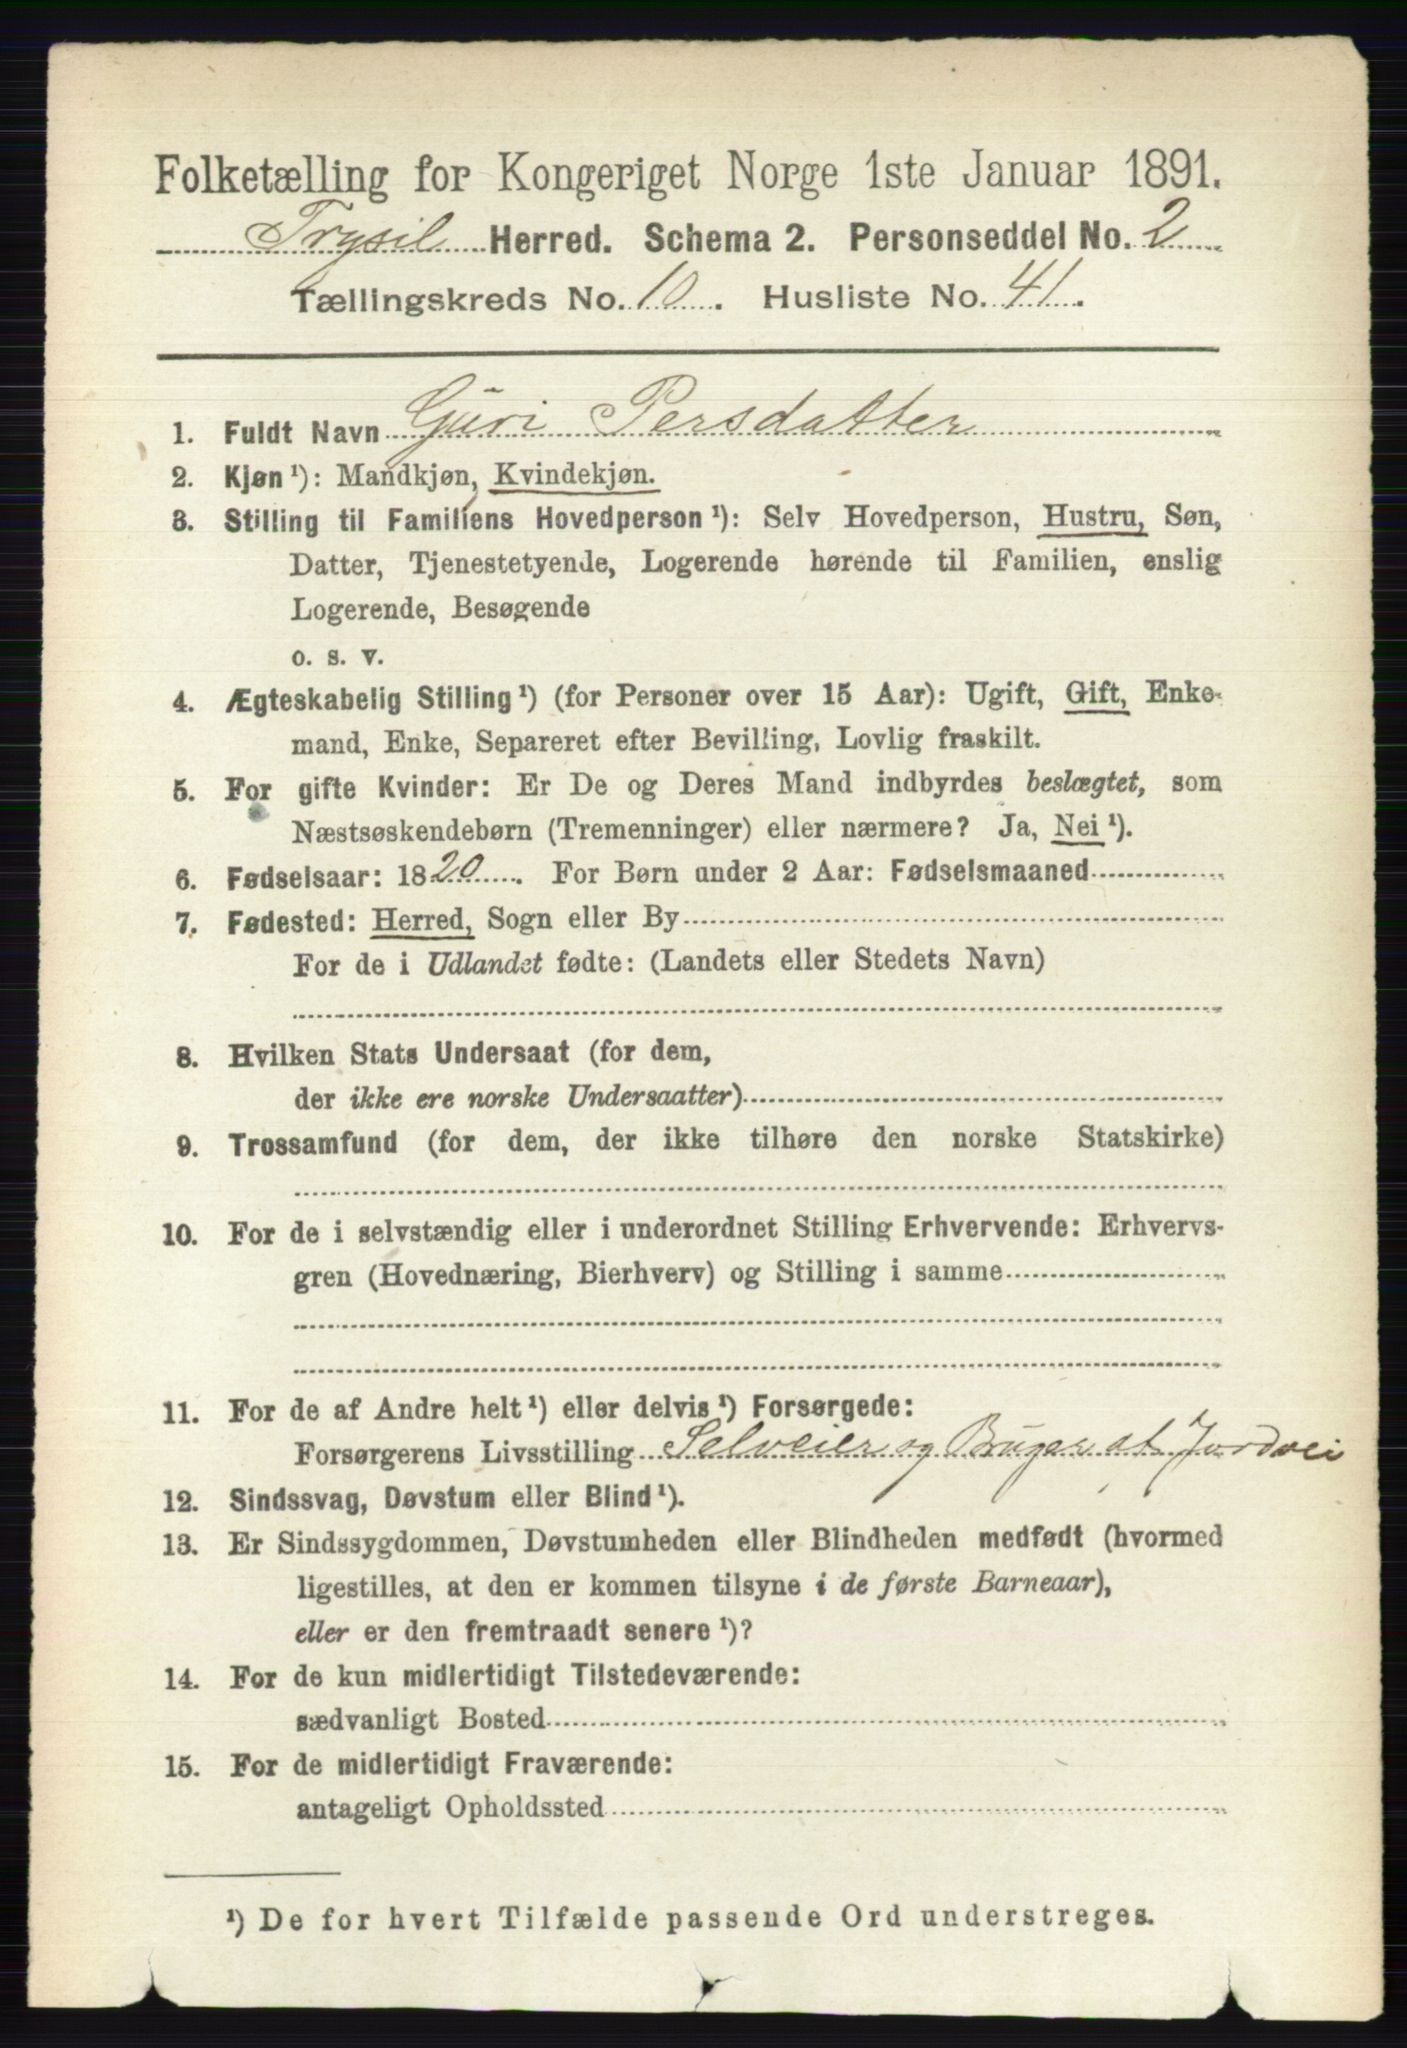 Folketælling for Kongeriget Norge 1ste Januar 1891.
Trysil Herred. Schema 2. Personseddel No. 2
Tællingskreds No. 10. Husliste No. 41.
1. Fuldt Navn Guri Persdatter
2. Kjøn¹): Mandkjøn, Kvindekjøn.
3. Stilling til Familiens Hovedperson¹): Selv Hovedperson, Hustru, Søn,
Datter, Tjenestetyende, Logerende hørende til Familien, enslig
Logerende, Besøgende
o. s. v.
4. Ægteskabelig Stilling¹) (for Personer over 15 Aar): Ugift, Gift, Enke-
mand, Enke, Separeret efter Bevilling, Lovlig fraskilt.
5. For gifte Kvinder: Er De og Deres Mand indbyrdes beslægtet, som
Næstsøskendebørn (Tremenninger) eller nærmere? Ja, Nei¹).
6. Fødselsaar: 1820. For Børn under 2 Aar: Fødselsmaaned
7. Fødested: Herred, Sogn eller By
For de i Udlandet fødte: (Landets eller Stedets Navn)
8. Hvilken Stats Undersaat (for dem,
der ikke ere norske Undersaatter)
9. Trossamfund (for dem, der ikke tilhøre den norske Statskirke)
10. For de i selvstændig eller i underordnet Stilling Erhvervende: Erhvervs-
gren (Hovednæring, Bierhverv) og Stilling i samme
11. For de af Andre helt¹) eller delvis¹) Forsørgede:
Forsørgerens Livsstilling Selveier og Bruger af Jordvei
12. Sindssvag, Døvstum eller Blind¹).
13. Er Sindssygdommen, Døvstumheden eller Blindheden medfødt (hvormed
ligestilles, at den er kommen tilsyne i de første Barneaar),
eller er den fremtraadt senere¹)?
14. For de kun midlertidigt Tilstedeværende:
sædvanligt Bosted
15. For de midlertidigt Fraværende:
antageligt Opholdssted
¹) De for hvert Tilfælde passende Ord understreges.